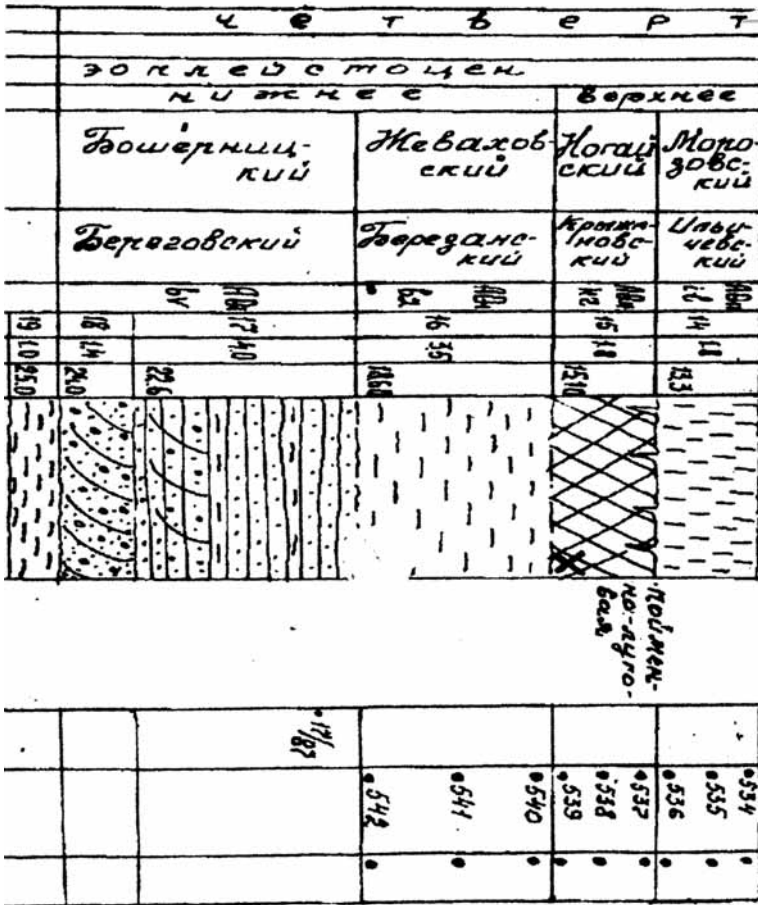 ч е т в е р т
эоплейстоцен
нижнее
верхнее
Бошерниц-
кий
Жевахов-
ский
Ногай
ский
Моро-
зовс-
кий
Береговский
Березанс-
кий
Крыжа-
новс-
кий
Ильи-
чевс-
кий
19
18
17
16
15
14
1.0
1.4
4.0
3.5
1.8
1.8
25.0
24.0
22.6
18.60
15.10
13.3
Поймен-
но-луго-
вая
542
541
540
539
538
537
536
535
534